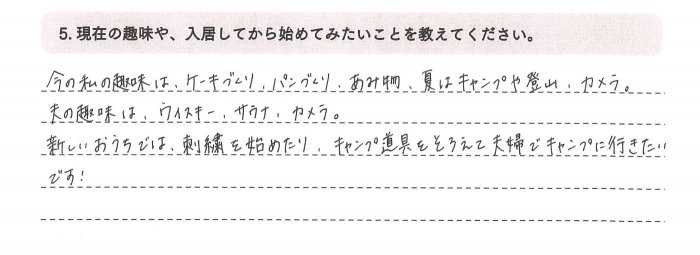 5. 現在の趣味や、入居してから始めてみたいことを教えてください。
今の私の趣味は、ケーキづくり、パンづくり、あみ物、夏はキャンプや登山、カメラ。
夫の趣味は、ウィスキー、サウナ、カメラ。
新しいおうちでは、刺繍を始めたり、キャンプ道具をそろえて夫婦でキャンプに行きたい
です!